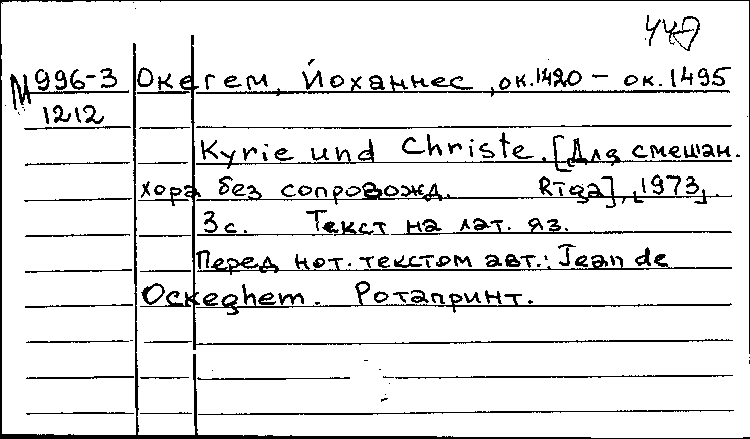 449
М 996-3 Окегем, Йоханнес, ок. 1420 – ок. 1495
1212
Kyrie und Christe. [Для смешан.
хора без сопровожд. Rīga], [1973].
3 с. Текст на лат. яз.
Перед нот. текстом авт.: Jean de
Ockeghem. Ротапринт.